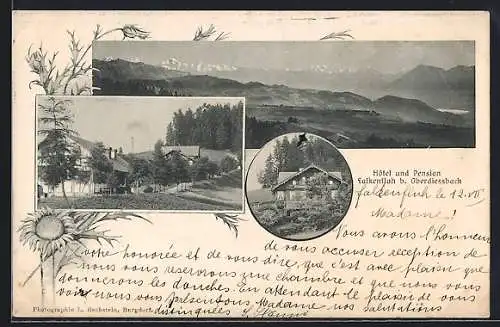 Hôtel und Pension
Falkenfluh b. Oberdiessbach
Falkenfluh le 12. VII
Madame!
Nous avons l'honneur
de vous accuser réception de
votre honorée et de vous dire, que c'est avec plaisir que
nous vous reserverons une chambre et que nous vous
donnerons les douches. En attendant le plaisir de vous
voir nous vous présentons, Madame nos salutations
distinquées
Photographie L. Bechstein, Burgdorf.